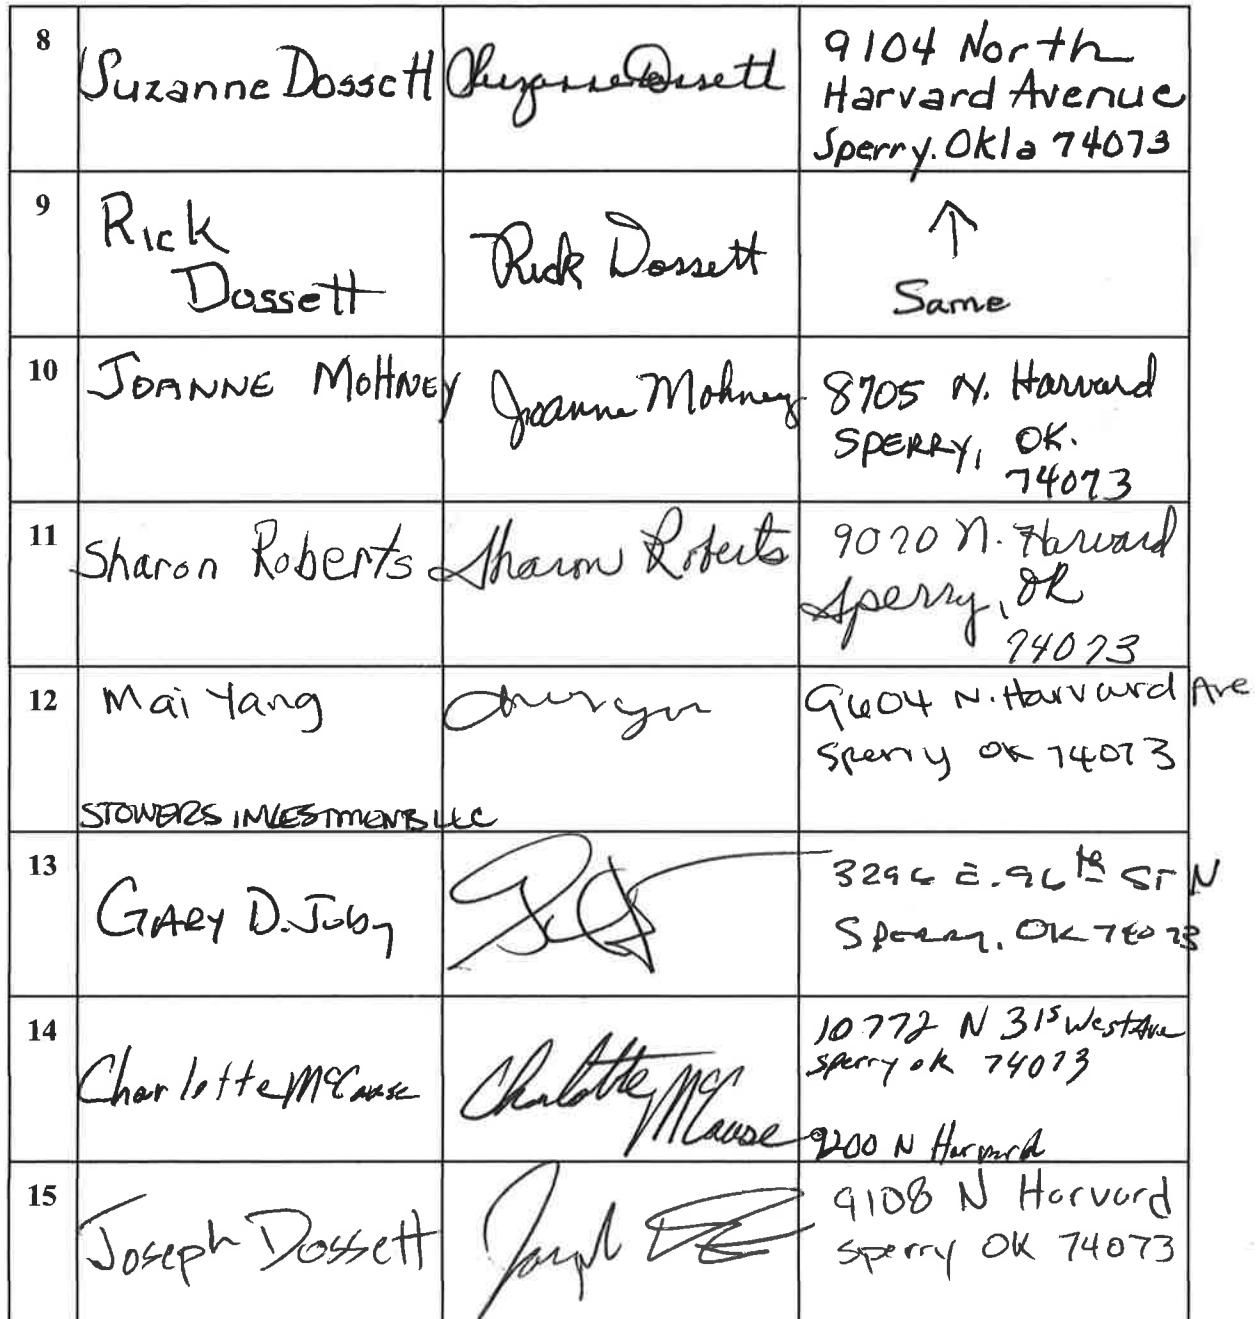 8
Suzanne Dossett
Suzanne Dossett
9104 North
Harvard Avenue
Sperry. Okla 74073
9
Rick
Dossett
Rick Dossett
↑
Same
10
JOANNE MOHNEY
Joanne Mohney
8705 N. Harvard
SPERRY, OK.
74073
11
Sharon Roberts
Sharon Roberts
9020 N. Harvard
Sperry, OK
74073
12
Mai Yang
9604 N. Harvard Ave
Sperry OK 74073
STOWERS INVESTMENTS LLC
13
GARY D. Juby
3296 E. 96th ST N
Sperry, OK 74073
14
Charlotte McCause
Charlotte McCause
10772 N 31s West Ave
Sperry ok 74073
9200 N Harvard
15
Joseph Dossett
Joseph
9108 N Harvard
Sperry OK 74073